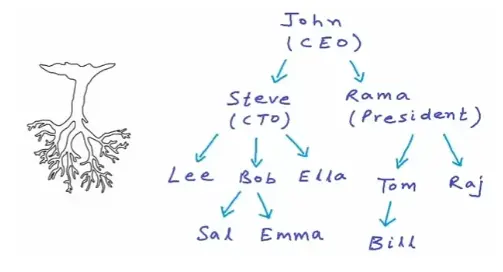 John
(CEO)
Steve
(CTO)
Rama
(President)
Lee Bob Ella Tom Raj
Sal Emma Bill